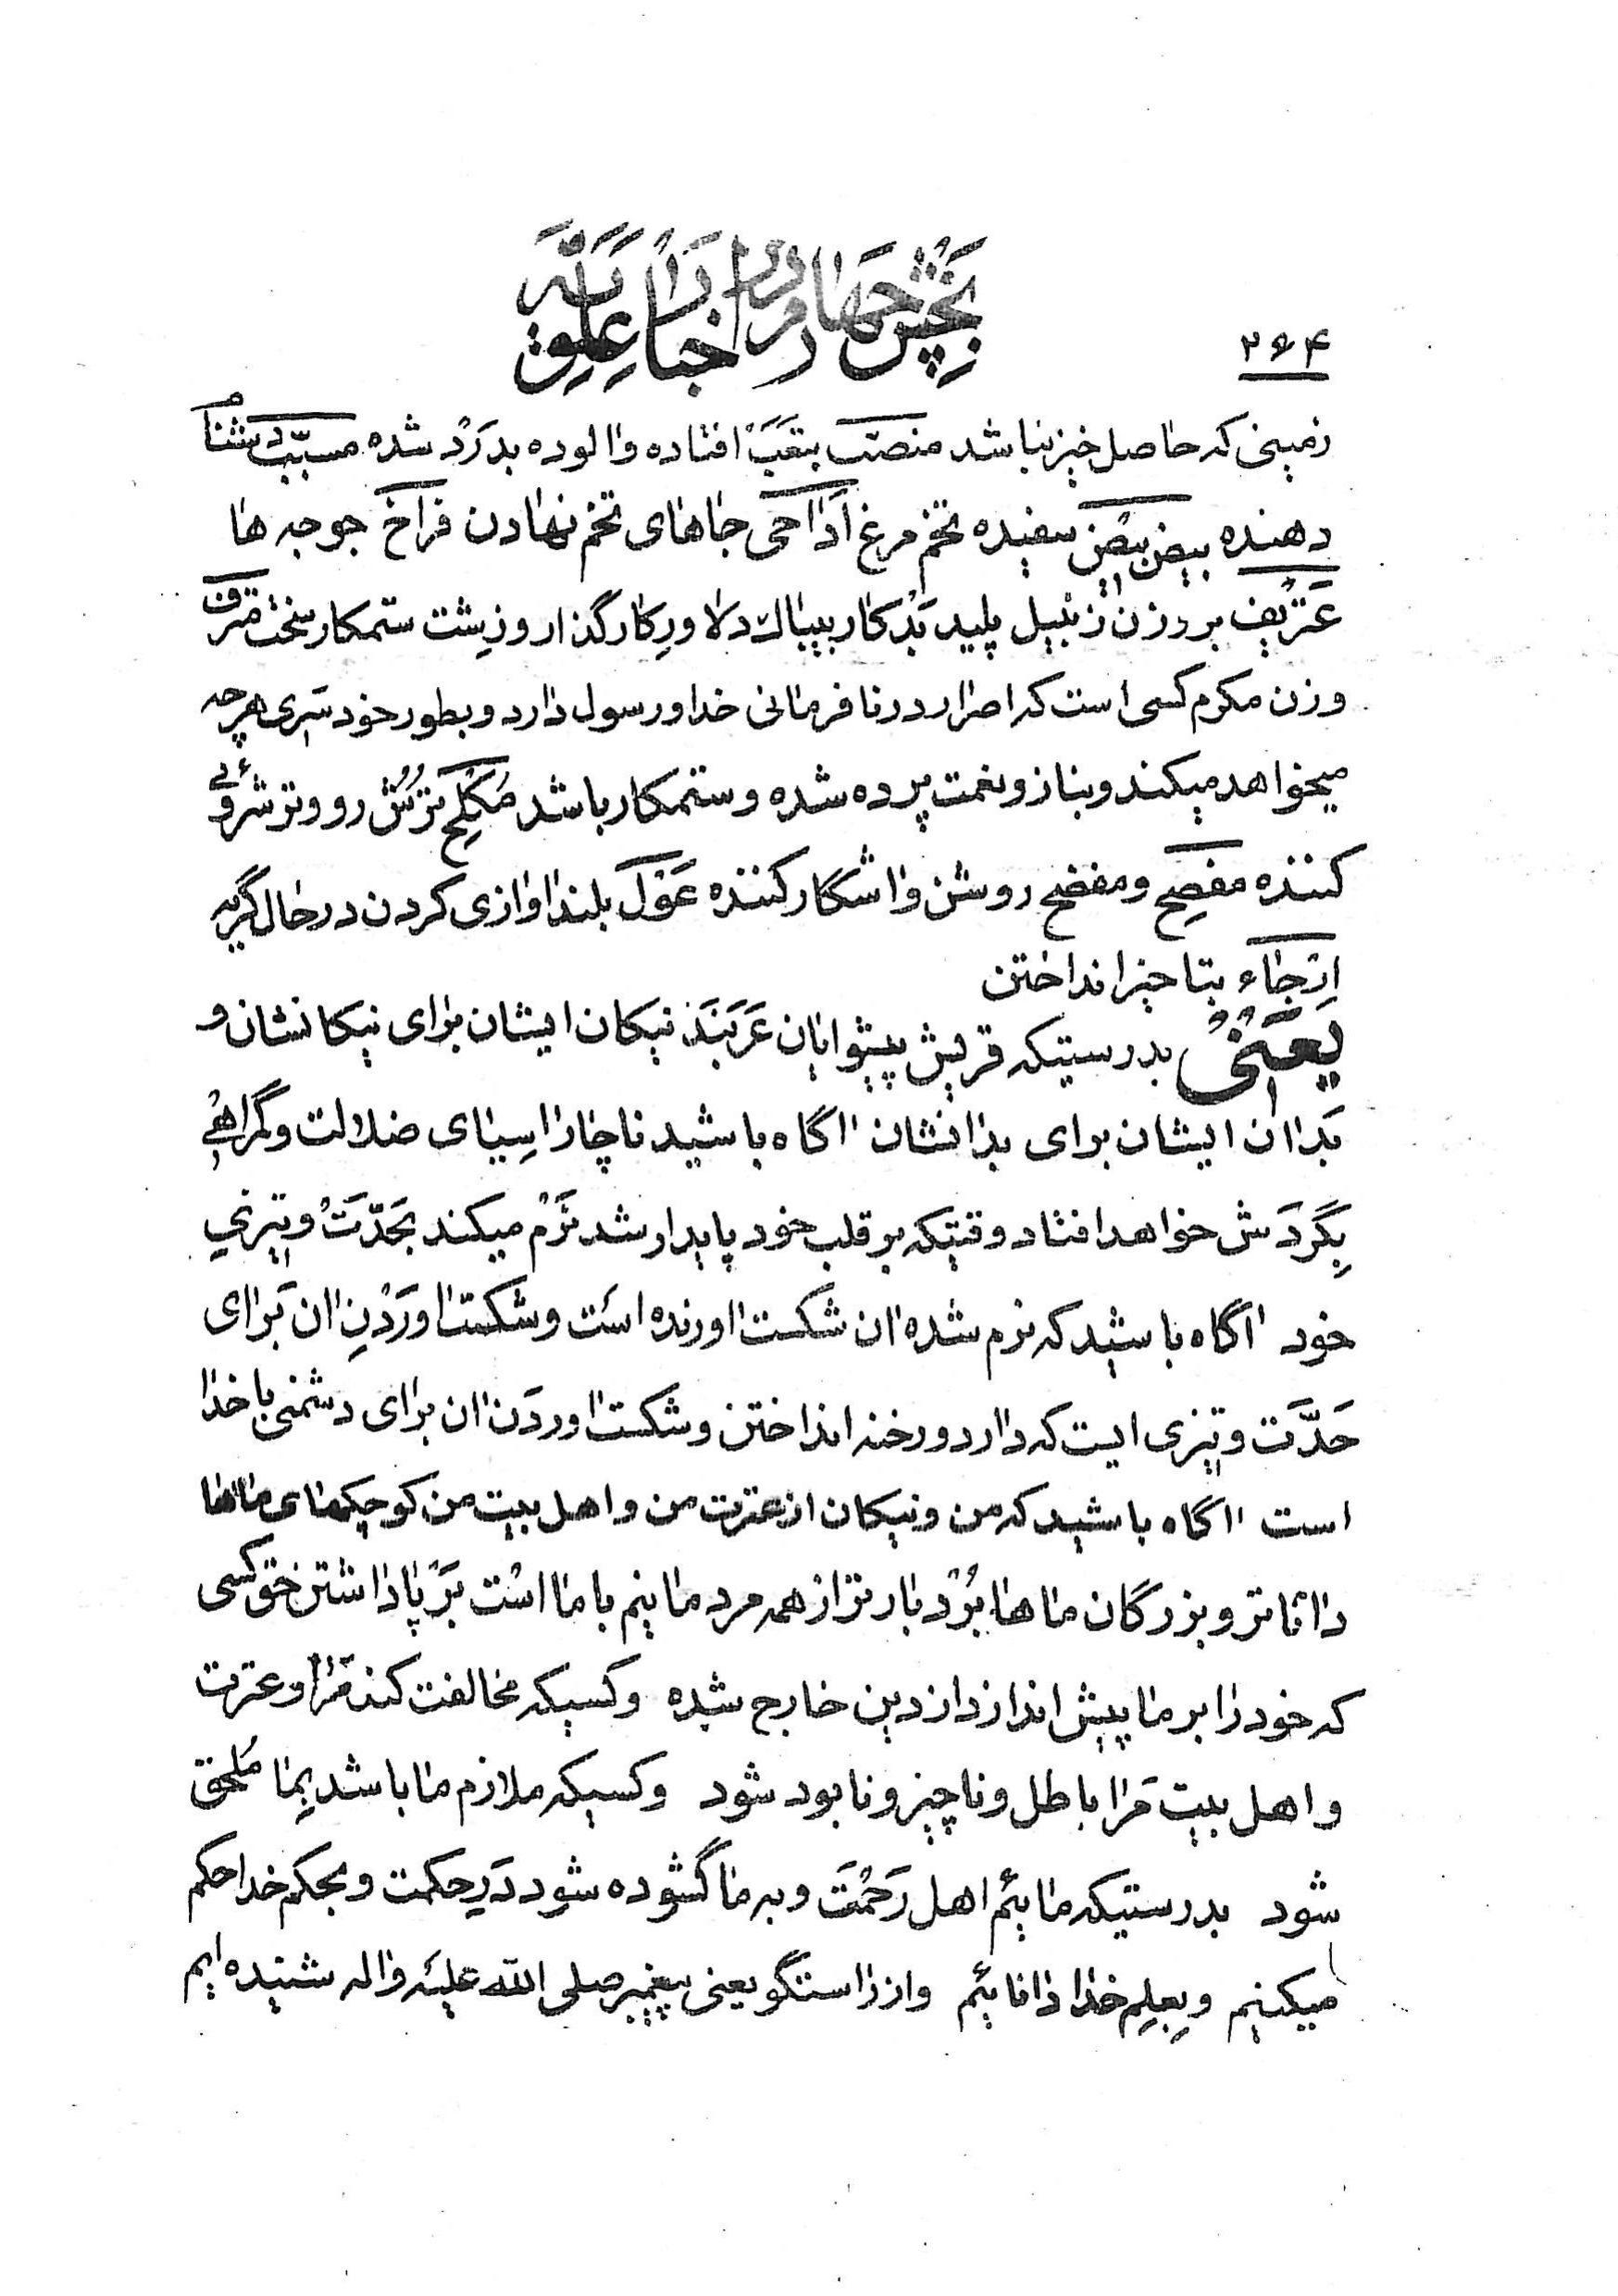 ۲۶۴
بخش چهارم در اخبار علویه
زمینی که حاصل خیز نباشد منصبّ بتعَب افتاده و الوده بدَرَد شده مسبّب دشنام
دهنده بیض بیضِ سفیده تخم مرغ اَداحی جاهای تخم نهادن فراخ جوجه ها
عَتریف بر وزن زنبیل پلید بَدکار بیباک دلاورِ کار گذار و زِشت ستمکار سخت مترف
وزن مکرم کسی است که اصرار در نافرمانی خدا و رسول دارد و بطور خود سَری هر چه
میخواهد میکند و بناز و نعمت پرده شده و ستمکار باشد مُکلِح تُرُش رو و ترشروئی
کننده مفصِح و مفضح روشن و اشکار کننده عَوَل بلند اوازی کردن در حال گریه
اِرجاء بتاخیر انداختن
یَعنی بدرستیکه قریش پیشوایان عَرَبَند نیکان ایشان برای نیکانشان و
بَدان ایشان برای بدانشان اگاه باشید ناچار اسِیای ضلالت و گمراهی
بِگردَش خواهد افتاد وقتیکه بر قلب خود پایدار شد نَرم میکند بحَدّتْ و تیزیِ
خود اگاه باشید که نرم شده ان شکست اورنده است و شکست اورَدْنِ ان بَرای
حَدَّت و تیزی ایست که دارد و رخنه انداختن و شکست اوردَن ان برای دشمنی با خدا
است اگاه باشید که من و نیکان از عترت من و اهل بیت من کوچکهای ماها
داناتر و بزرگان ماها بُرْدبارتر از همه مردمانیم با ما است بَرْپا داشتن حق کسی
که خود را بر ما پیش اندازد از دین خارج شده و کسیکه مخالفت کند مَرا و عترت
و اهل بیت مَرا باطل و ناچیز و نابود شود و کسیکه ملازم ما باشد بِما مُلحق
شود بدرستیکه مائیم اهل رَحمْت و به ما گشوده شود دَرِ حکمت و بحکم خدا حکم
میکنیم و بِعِلِم خدا دانائیم و از راستگو یعنی پیغمبر صلی الله علیه و اله شنیده ایم